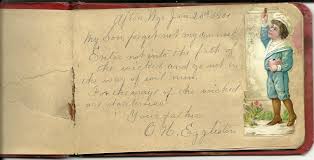 Afton, Wyo. Jan 20th 1901
My Son forget not my counsel
Enter not into the path of
the wicked and go not in
the way of evil men.
For the ways of the wicked
are
Your father
O. H. Eggleston